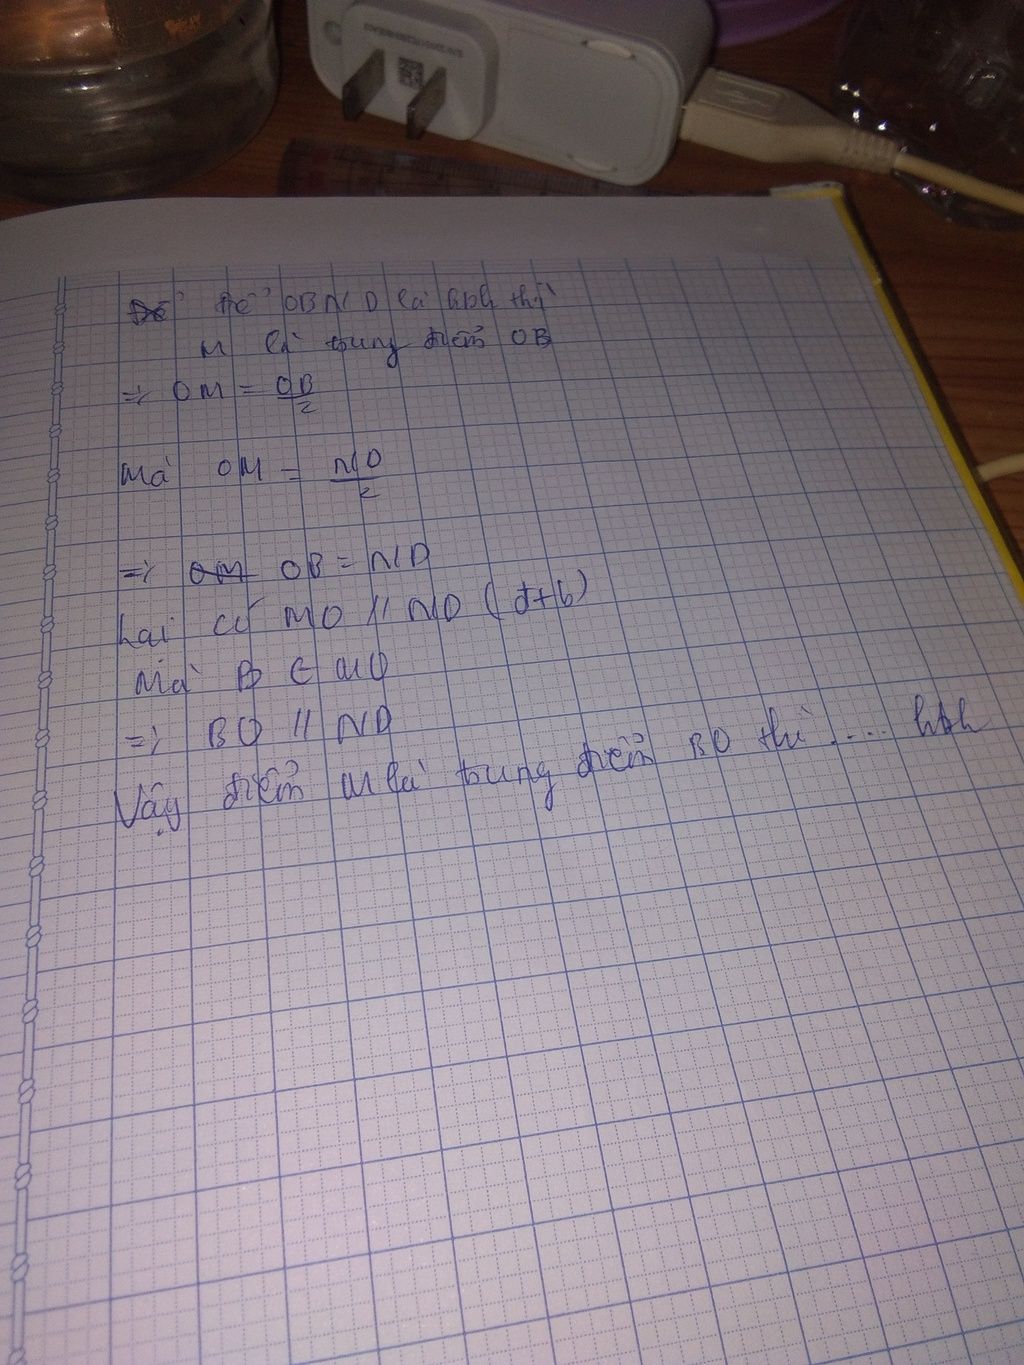 Để OBND là hbh thì
M là trung điểm OB
=> OM = OB/2
Mà OM = ND/2
=> OM OB = ND
Lại có MO // ND (đtb)
Mà B ∈ MO
=> BO // ND
Vậy điểm M là trung điểm BO thì .... hbh